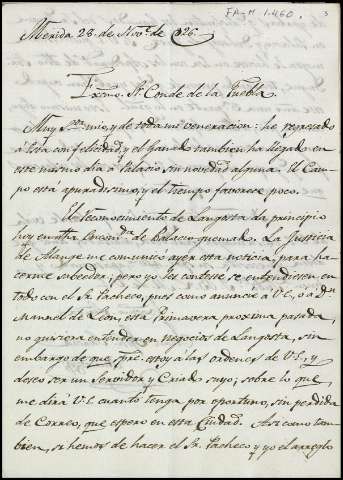 FA-M 1.460. 3
Merida 28 de Nov.e de 826
Exmo. Sr. Conde de la Puebla.
Muy Sor. mio, y de toda mi veneracion: he regresado
á Esta con felicidad, y el Ganado tambien ha llegado en
este mismo dia á Palacio sin novedad alguna. El Cam-
po está apuradisimo, y el tiempo favorece poco.
El reconocimiento de Langosta da principio
hoy en otra Encomda. de Palacio quemado. La Justicia
de Alange me comunicó ayer esta noticia, para ha-
cermе saberlo; pero yo les contesté se entendiesen en
todo con el Sr. Pacheco, pues como anuncié á V.E. ó á Dn.
Manuel de Leon, esta Primavera proxima pasada,
no quisiera entender en negocios de Langosta, sin
embargo de que, spre. estoy á las ordenes de V.E. y
deseo ser un Servidor y Criado suyo; sobre lo que
me dirá V.E. cuanto tenga por oportuno, sin perdida
de Correo, que espero en esta Ciudad. Asi como tam-
bien, si hemos de hacer el Sr. Pacheco y yo el arreglo